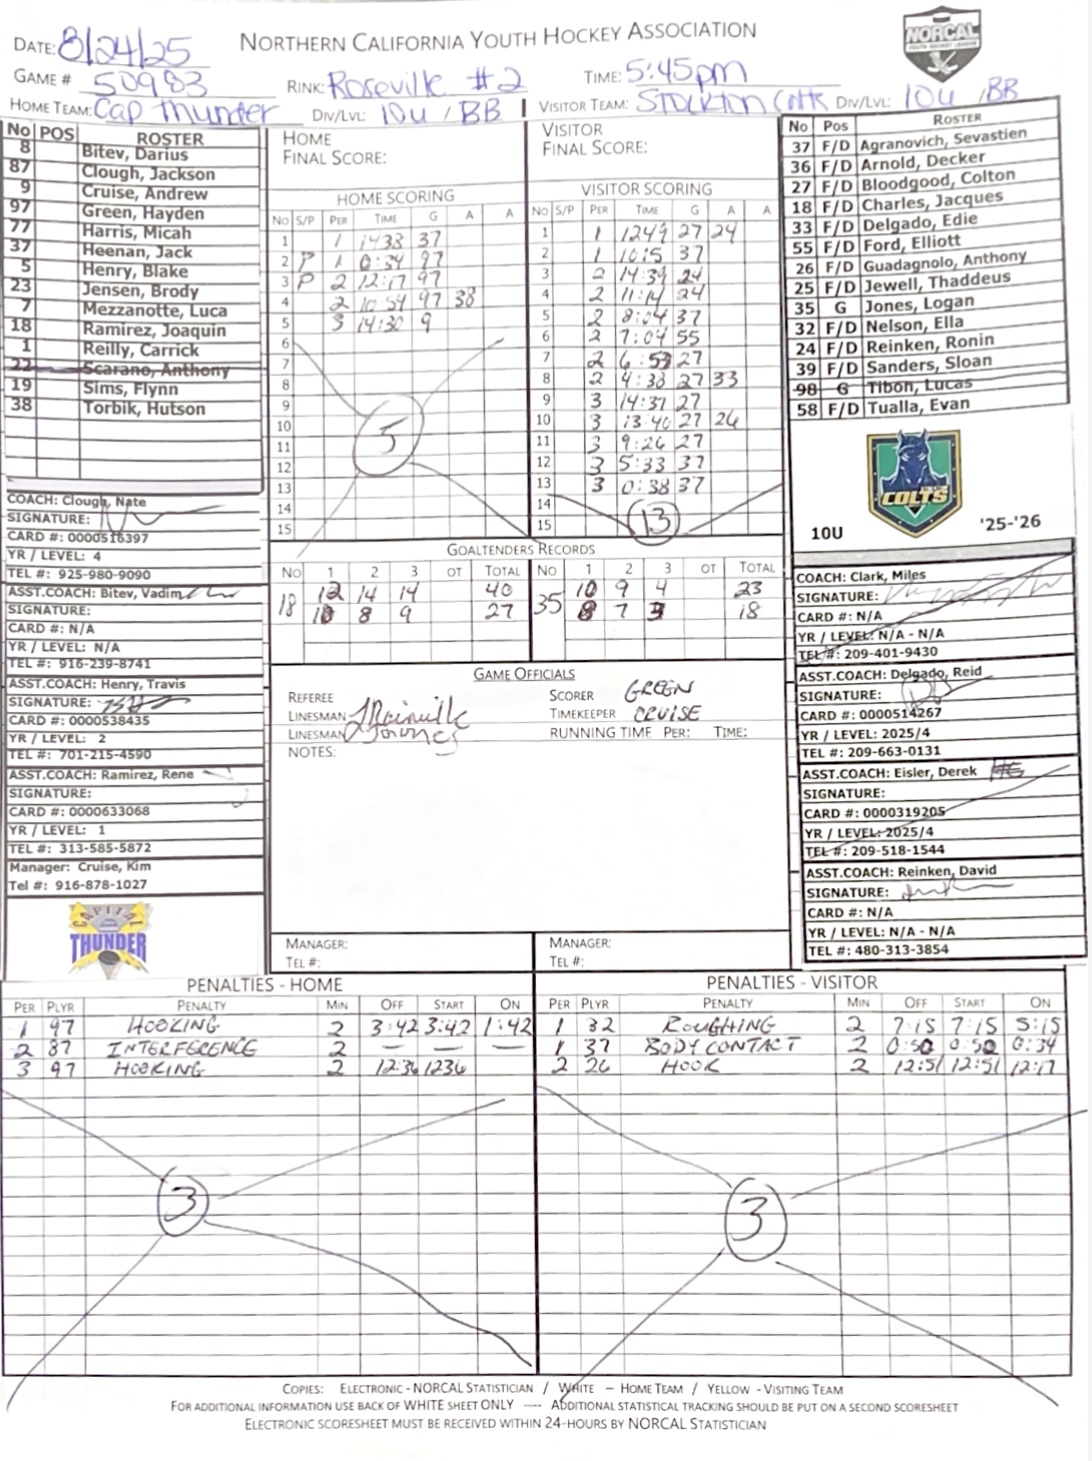 NORTHERN CALIFORNIA YOUTH HOCKEY ASSOCIATION
NORCAL
YOUTH HOCKEY LEAGUE
DATE: 8/24/25
GAME # 50983
RINK: Roseville #2
TIME: 5:45pm
HOME TEAM: Cap Thunder
DIV/LVL: 10U / BB
VISITOR TEAM: Stockton Colts DIV/LVL: 10U / BB
No POS ROSTER
8 Bitev, Darius
87 Clough, Jackson
9 Cruise, Andrew
97 Green, Hayden
77 Harris, Micah
37 Heenan, Jack
5 Henry, Blake
23 Jensen, Brody
7 Mezzanotte, Luca
18 Ramirez, Joaquin
1 Reilly, Carrick
22 Scarano, Anthony
19 Sims, Flynn
38 Torbik, Hutson
COACH: Clough, Nate
SIGNATURE:
CARD #: 0000516397
YR / LEVEL: 4
TEL #: 925-980-9090
ASST.COACH: Bitev, Vadim
SIGNATURE:
CARD #: N/A
YR / LEVEL: N/A
TEL #: 916-239-8741
ASST.COACH: Henry, Travis
SIGNATURE:
CARD #: 0000538435
YR / LEVEL: 2
TEL #: 701-215-4590
ASST.COACH: Ramirez, Rene
SIGNATURE:
CARD #: 0000633068
YR / LEVEL: 1
TEL #: 313-585-5872
Manager: Cruise, Kim
Tel #: 916-878-1027
CAPITAL
THUNDER
HOME
FINAL SCORE:
HOME SCORING
No S/P PER TIME G A A
1 1 1438 37
2 P 1 0:34 97
3 P 2 12:17 97
4 2 10:54 97 38
5 3 14:30 9
6
7
8
9
10
11
12
13
14
15
5
VISITOR
FINAL SCORE:
VISITOR SCORING
No S/P PER TIME G A A
1 1 1249 27 24
2 1 10:5 37
3 2 14:39 24
4 2 11:14 24
5 2 8:04 37
6 2 7:04 55
7 2 6:53 27
8 2 4:38 27 33
9 3 14:37 27
10 3 13:40 27 26
11 3 9:26 27
12 3 5:33 37
13 3 0:38 37
14
15
13
GOALTENDERS RECORDS
No 1 2 3 OT TOTAL No 1 2 3 OT TOTAL
18 12 14 14 40 35 10 9 4 23
10 8 9 27 8 7 3 18
GAME OFFICIALS
REFEREE
LINESMAN
LINESMAN
SCORER GREEN
TIMEKEEPER CRUISE
RUNNING TIME PER: TIME:
NOTES:
MANAGER:
TEL #:
MANAGER:
TEL #:
No Pos ROSTER
37 F/D Agranovich, Sevastien
36 F/D Arnold, Decker
27 F/D Bloodgood, Colton
18 F/D Charles, Jacques
33 F/D Delgado, Edie
55 F/D Ford, Elliott
26 F/D Guadagnolo, Anthony
25 F/D Jewell, Thaddeus
35 G Jones, Logan
32 F/D Nelson, Ella
24 F/D Reinken, Ronin
39 F/D Sanders, Sloan
98 G Tibon, Lucas
58 F/D Tualla, Evan
COLTS
10U '25-'26
COACH: Clark, Miles
SIGNATURE:
CARD #: N/A
YR / LEVEL: N/A - N/A
TEL #: 209-401-9430
ASST.COACH: Delgado, Reid
SIGNATURE:
CARD #: 0000514267
YR / LEVEL: 2025/4
TEL #: 209-663-0131
ASST.COACH: Eisler, Derek
SIGNATURE:
CARD #: 0000319205
YR / LEVEL: 2025/4
TEL #: 209-518-1544
ASST.COACH: Reinken, David
SIGNATURE:
CARD #: N/A
YR / LEVEL: N/A - N/A
TEL #: 480-313-3854
PENALTIES - HOME
PER PLYR PENALTY MIN OFF START ON
1 97 HOOKING 2 3:42 3:42 1:42
2 87 INTERFERENCE 2 — — —
3 97 HOOKING 2 12:36 1236
3
PENALTIES - VISITOR
PER PLYR PENALTY MIN OFF START ON
1 32 ROUGHING 2 7:15 7:15 5:15
1 37 BODY CONTACT 2 0:50 0:50 0:34
2 26 HOOK 2 12:51 12:51 12:17
3
COPIES: ELECTRONIC - NORCAL STATISTICIAN / WHITE – HOME TEAM / YELLOW - VISITING TEAM
FOR ADDITIONAL INFORMATION USE BACK OF WHITE SHEET ONLY ---- ADDITIONAL STATISTICAL TRACKING SHOULD BE PUT ON A SECOND SCORESHEET
ELECTRONIC SCORESHEET MUST BE RECEIVED WITHIN 24-HOURS BY NORCAL STATISTICIAN